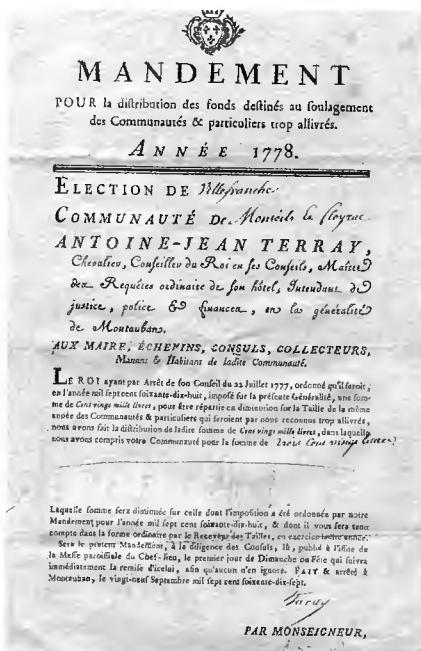 MANDEMENT
POUR la diſtribution des fonds deſtinés au ſoulagement
des Communautés & particuliers trop allivrés.
ANNÉE 1778.
ÉLECTION DE Villefranche
COMMUNAUTÉ DE Monteils le
ANTOINE-JEAN TERRAY,
Chevalier, Conſeiller du Roi en ſes Conſeils, Maître
des Requêtes ordinaire de ſon hôtel, Intendant de
juſtice, police & finances, en la généralité
de Montauban.
AUX MAIRE, ÉCHEVINS, CONSULS, COLLECTEURS,
Manans & Habitans de ladite Communauté.
LE ROI ayant par Arrêt de ſon Conſeil du 22 Juillet 1777, ordonné qu'il ſeroit,
en l'année mil ſept cent ſoixante-dix-huit, impoſé ſur la préſente Généralité, une ſom-
me de Cent vingt mille livres, pour être répartie en diminution ſur la Taille de la même
année des Communautés & particuliers qui ſeroient par nous reconnus trop allivrés,
nous avons fait la diſtribution de ladite ſomme de Cent vingt mille livres, dans laquelle
nous avons compris votre Communauté pour la ſomme de trois Cens vingt livres
Laquelle ſomme ſera diminuée ſur celle dont l'impoſition a été ordonnée par notre
Mandement pour l'année mil ſept cent ſoixante-dix-huit, & dont il vous ſera tenu
compte dans la forme ordinaire par le Receveur des Tailles, en exercice ladite année.
Sera le préſent Mandement, à la diligence des Conſuls, lû, publié à l'iſſue de
la Meſſe paroiſſiale du Chef-lieu, le premier jour de Dimanche ou Fête qui ſuivra
immédiatement la remiſe d'icelui, afin qu'aucun n'en ignore. FAIT & arrêté à
Montauban, le vingt-neuf Septembre mil ſept cent ſoixante-dix-ſept.
Terray
PAR MONSEIGNEUR,